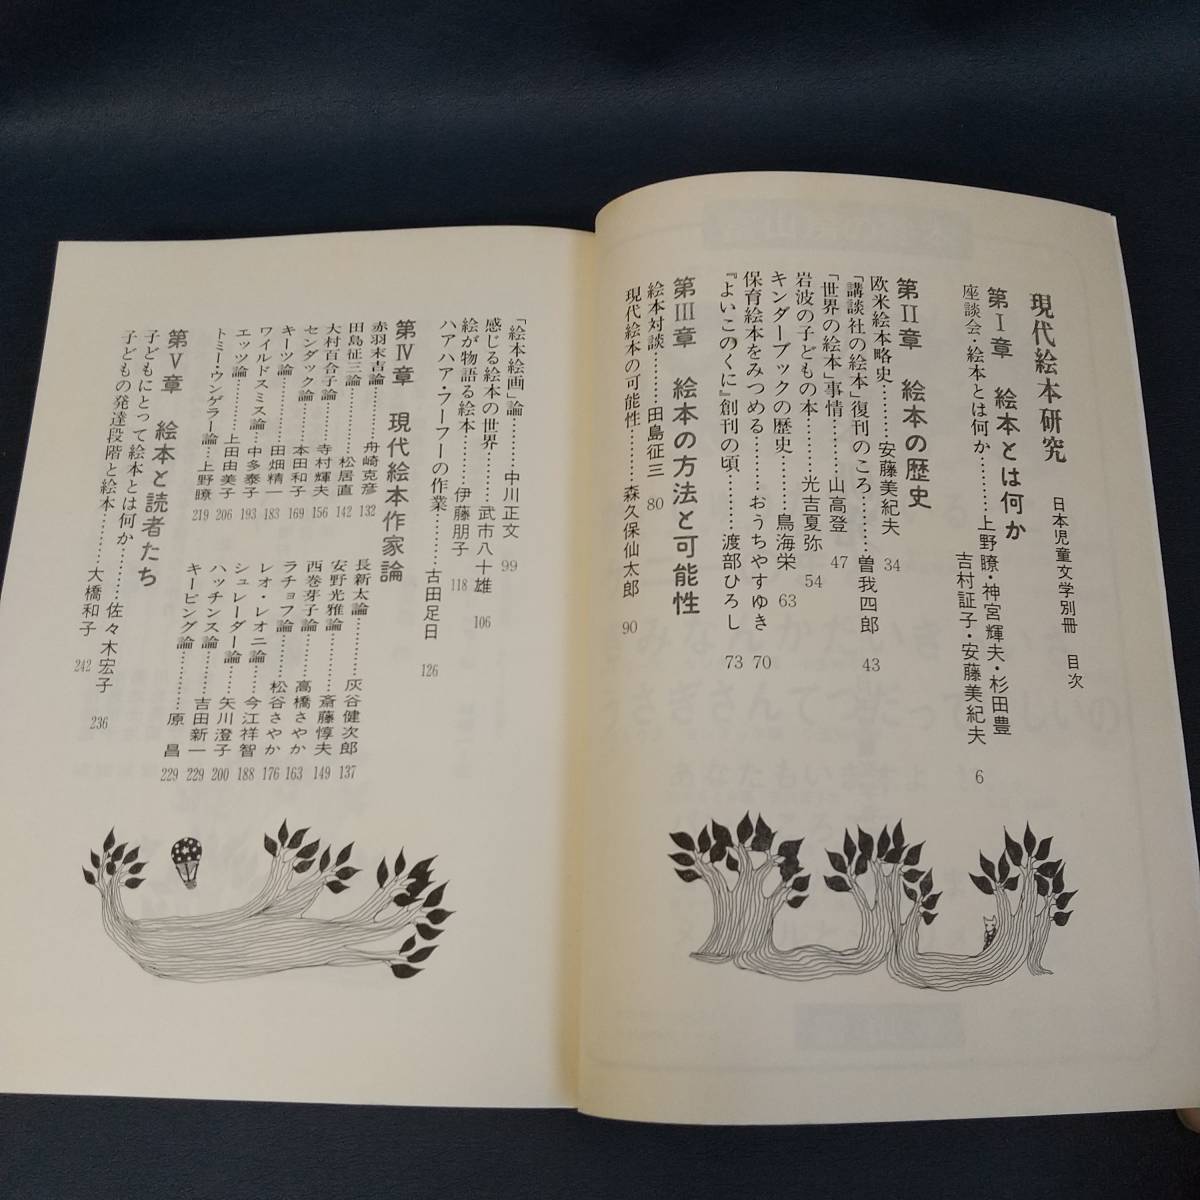 現代絵本研究　日本児童文学別冊　目次
第Ⅰ章　絵本とは何か
座談会・絵本とは何か………上野瞭・神宮輝夫・杉田豊
吉村証子・安藤美紀夫 6
第Ⅱ章　絵本の歴史
欧米絵本略史………安藤美紀夫 34
「講談社の絵本」復刊のころ………曽我四郎 43
「世界の絵本」事情………山高登 47
岩波の子どもの本………光吉夏弥 54
キンダーブックの歴史………鳥海栄 63
保育絵本をみつめる………おうちやすゆき 70
『よいこのくに』創刊の頃………渡部ひろし 73
第Ⅲ章　絵本の方法と可能性
絵本対談………田島征三 80
現代絵本の可能性………森久保仙太郎 90
「絵本絵画」論………中川正文 99
感じる絵本の世界………武市八十雄 106
絵が物語る絵本………伊藤朋子 118
ハアハア・フーフーの作業………古田足日 126
第Ⅳ章　現代絵本作家論
赤羽末吉論………舟崎克彦 132
田島征三論………松居直 142
大村百合子論………寺村輝夫 156
センダック論………本田和子 169
キーツ論………田畑精一 183
ワイルドスミス論………中多泰子 193
エッツ論………上田由美子 206
トミー・ウンゲラー論………上野瞭 219
長新太論………灰谷健次郎 137
安野光雅論………斎藤惇夫 149
西巻茅子論………高橋さやか 163
ラチョフ論………松谷さやか 176
レオ・レオニ論………今江祥智 188
シュレーダー論………矢川澄子 200
ハッチンス論………吉田新一 229
キーピング論………原　昌 229
第Ⅴ章　絵本と読者たち
子どもにとって絵本とは何か………佐々木宏子 236
子どもの発達段階と絵本………大橋和子 242